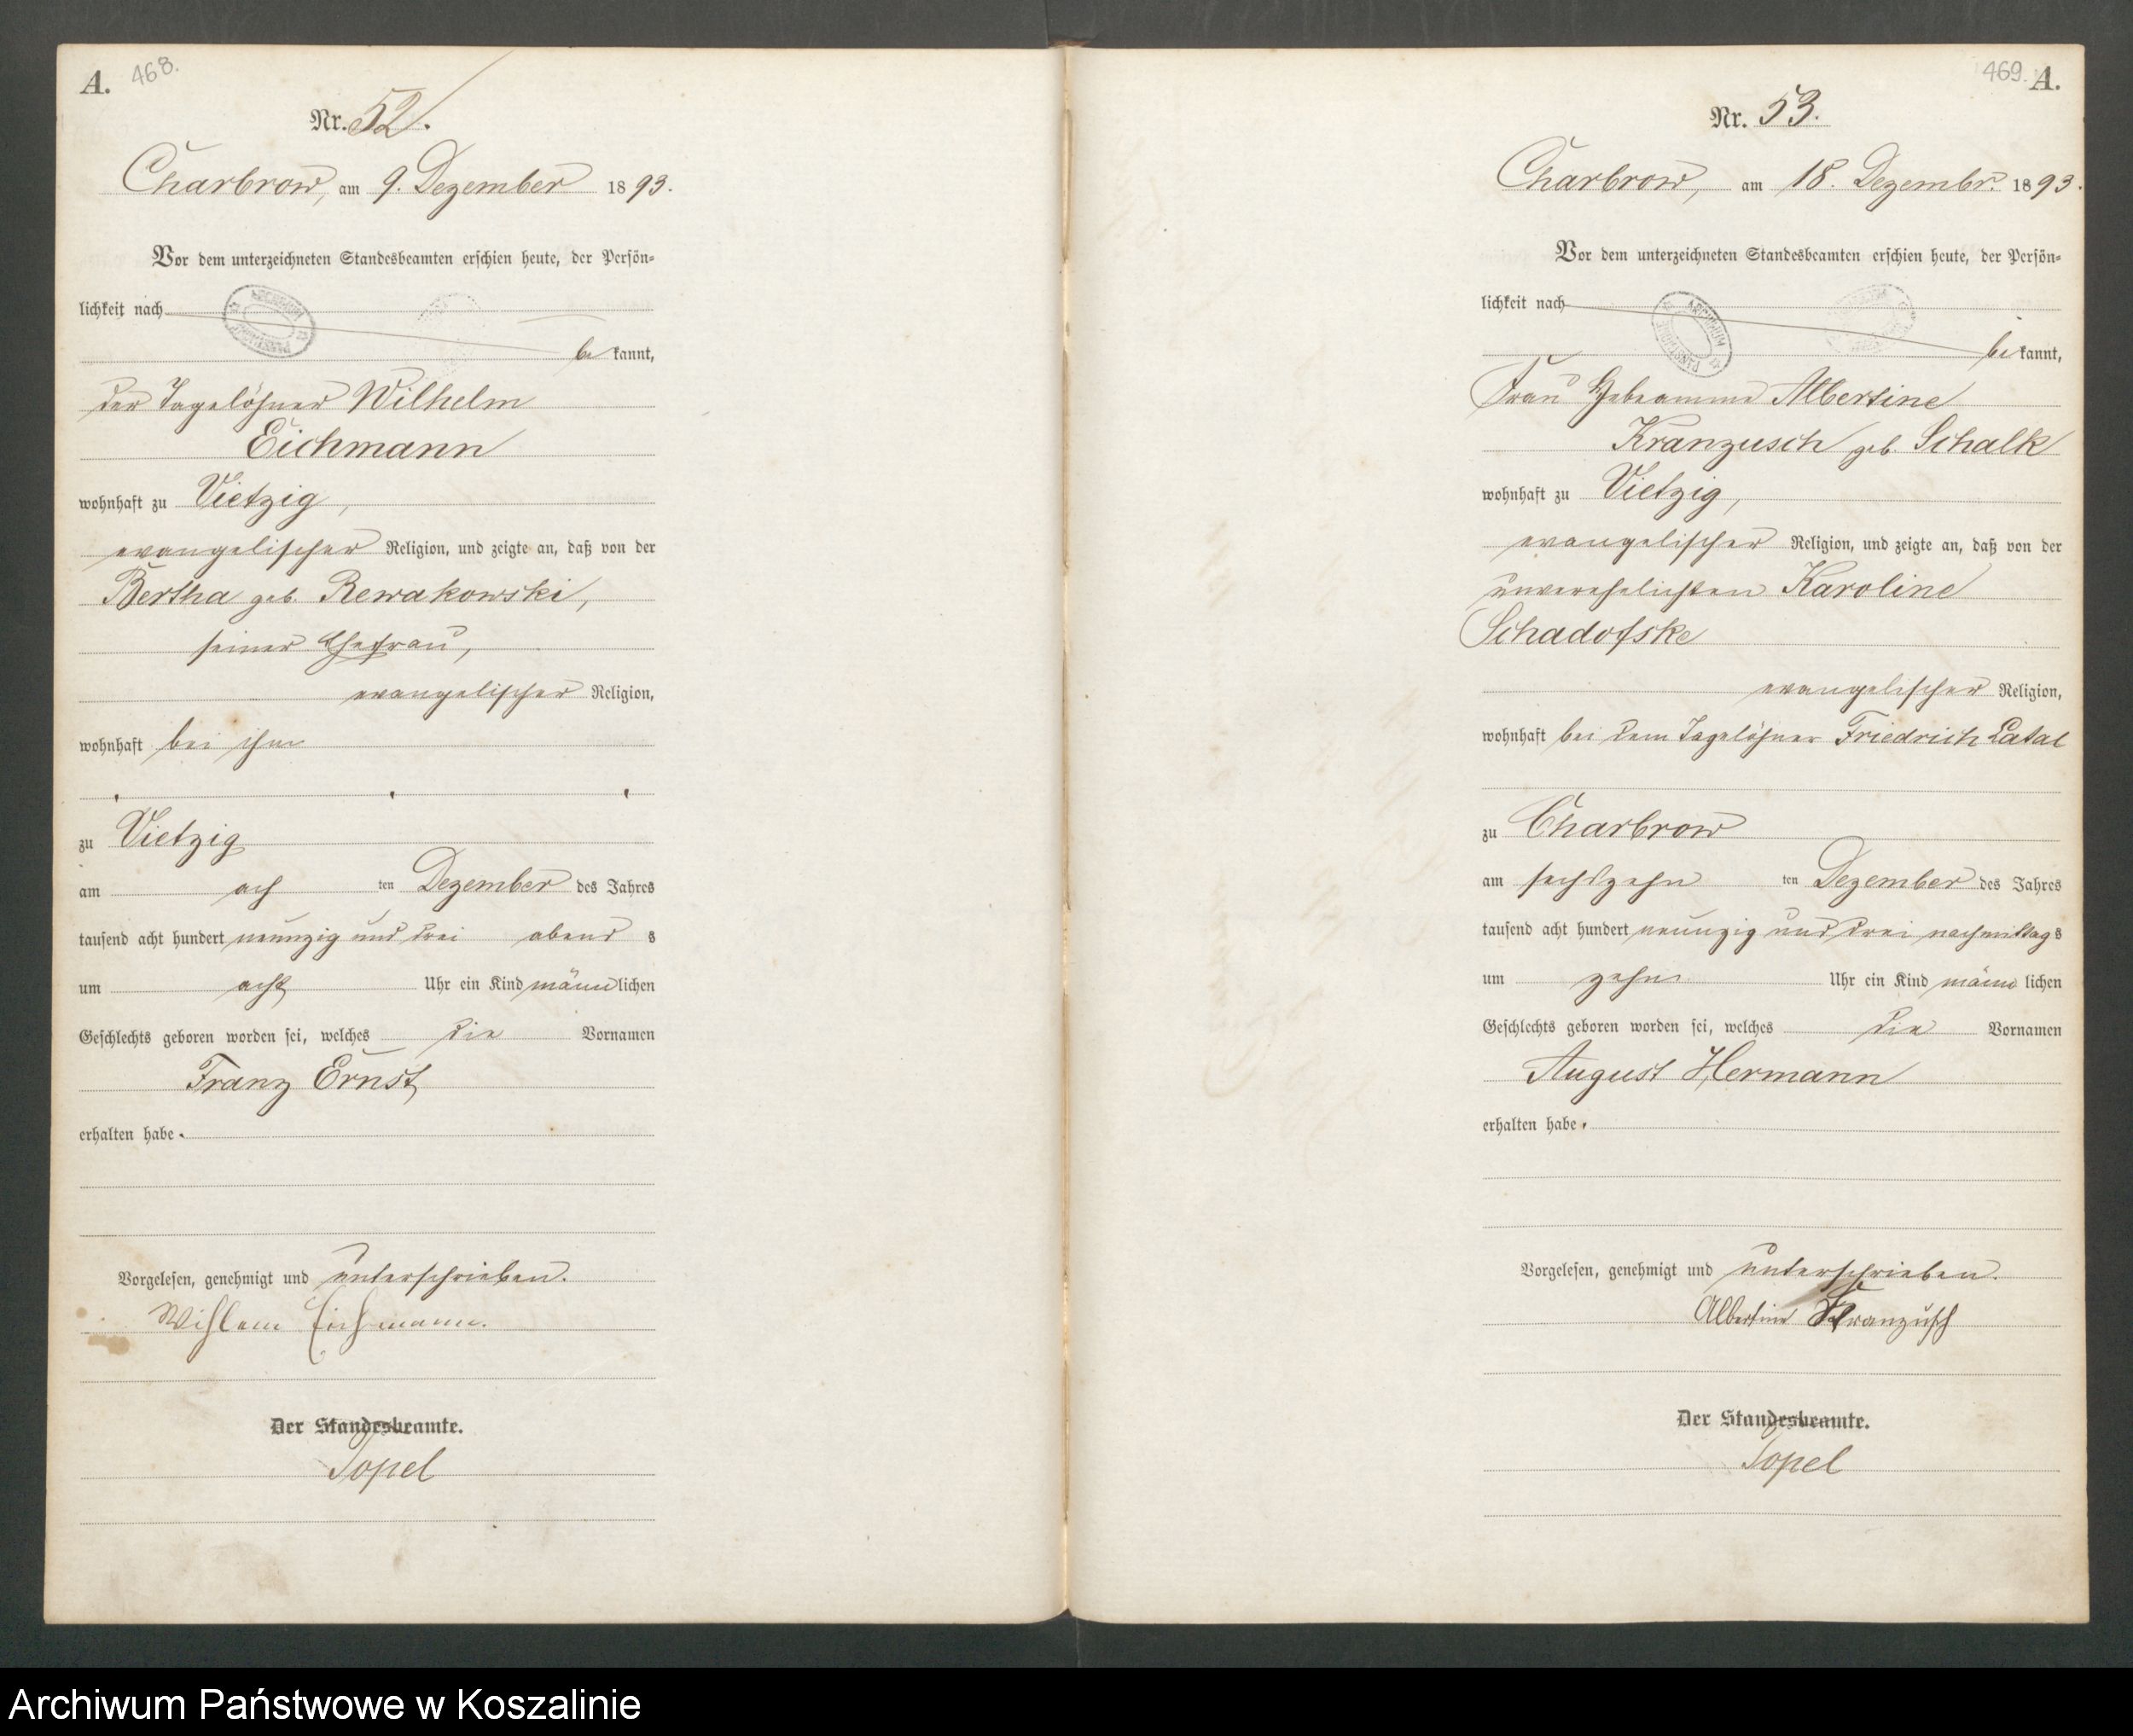 A. 468.
Nr. 52.
Charbrow, am 9. Dezember 1893.
Vor dem unterzeichneten Standesbeamten erschien heute, der Persön-
lichkeit nach
be kannt,
der Tagelöhner Wilhelm
Eichmann
wohnhaft zu Vietzig,
evangelischer Religion, und zeigte an, daß von der
Bertha geb. Rewakowski,
seiner Ehefrau,
evangelischer Religion,
wohnhaft bei ihm
zu Vietzig
am ach ten Dezember des Jahres
tausend acht hundert neunzig und drei abend s
um acht Uhr ein Kind männ lichen
Geschlechts geboren worden sei, welches die Vornamen
Franz Ernst
erhalten habe.
Vorgelesen, genehmigt und unterschrieben.
Wihlem Eichmann.
Der Standesbeamte.
Topel
469. A.
Nr. 53.
Charbrow, am 18. Dezembr. 1893.
Vor dem unterzeichneten Standesbeamten erschien heute, der Persön-
lichkeit nach
be kannt,
Frau Hebeamme Albertine
Kranzusch geb. Schalk
wohnhaft zu Vietzig,
evangelischer Religion, und zeigte an, daß von der
unverehelichten Karoline
Schadofske
evangelischer Religion,
wohnhaft bei dem Tagelöhner Friedrich Latal
zu Charbrow
am sechszehn ten Dezember des Jahres
tausend acht hundert neunzig und drei nachmittag s
um zehn Uhr ein Kind männ lichen
Geschlechts geboren worden sei, welches die Vornamen
August Hermann
erhalten habe.
Vorgelesen, genehmigt und unterschrieben.
Albertine Kranzusch
Der Standesbeamte.
Topel
Archiwum Państwowe w Koszalinie